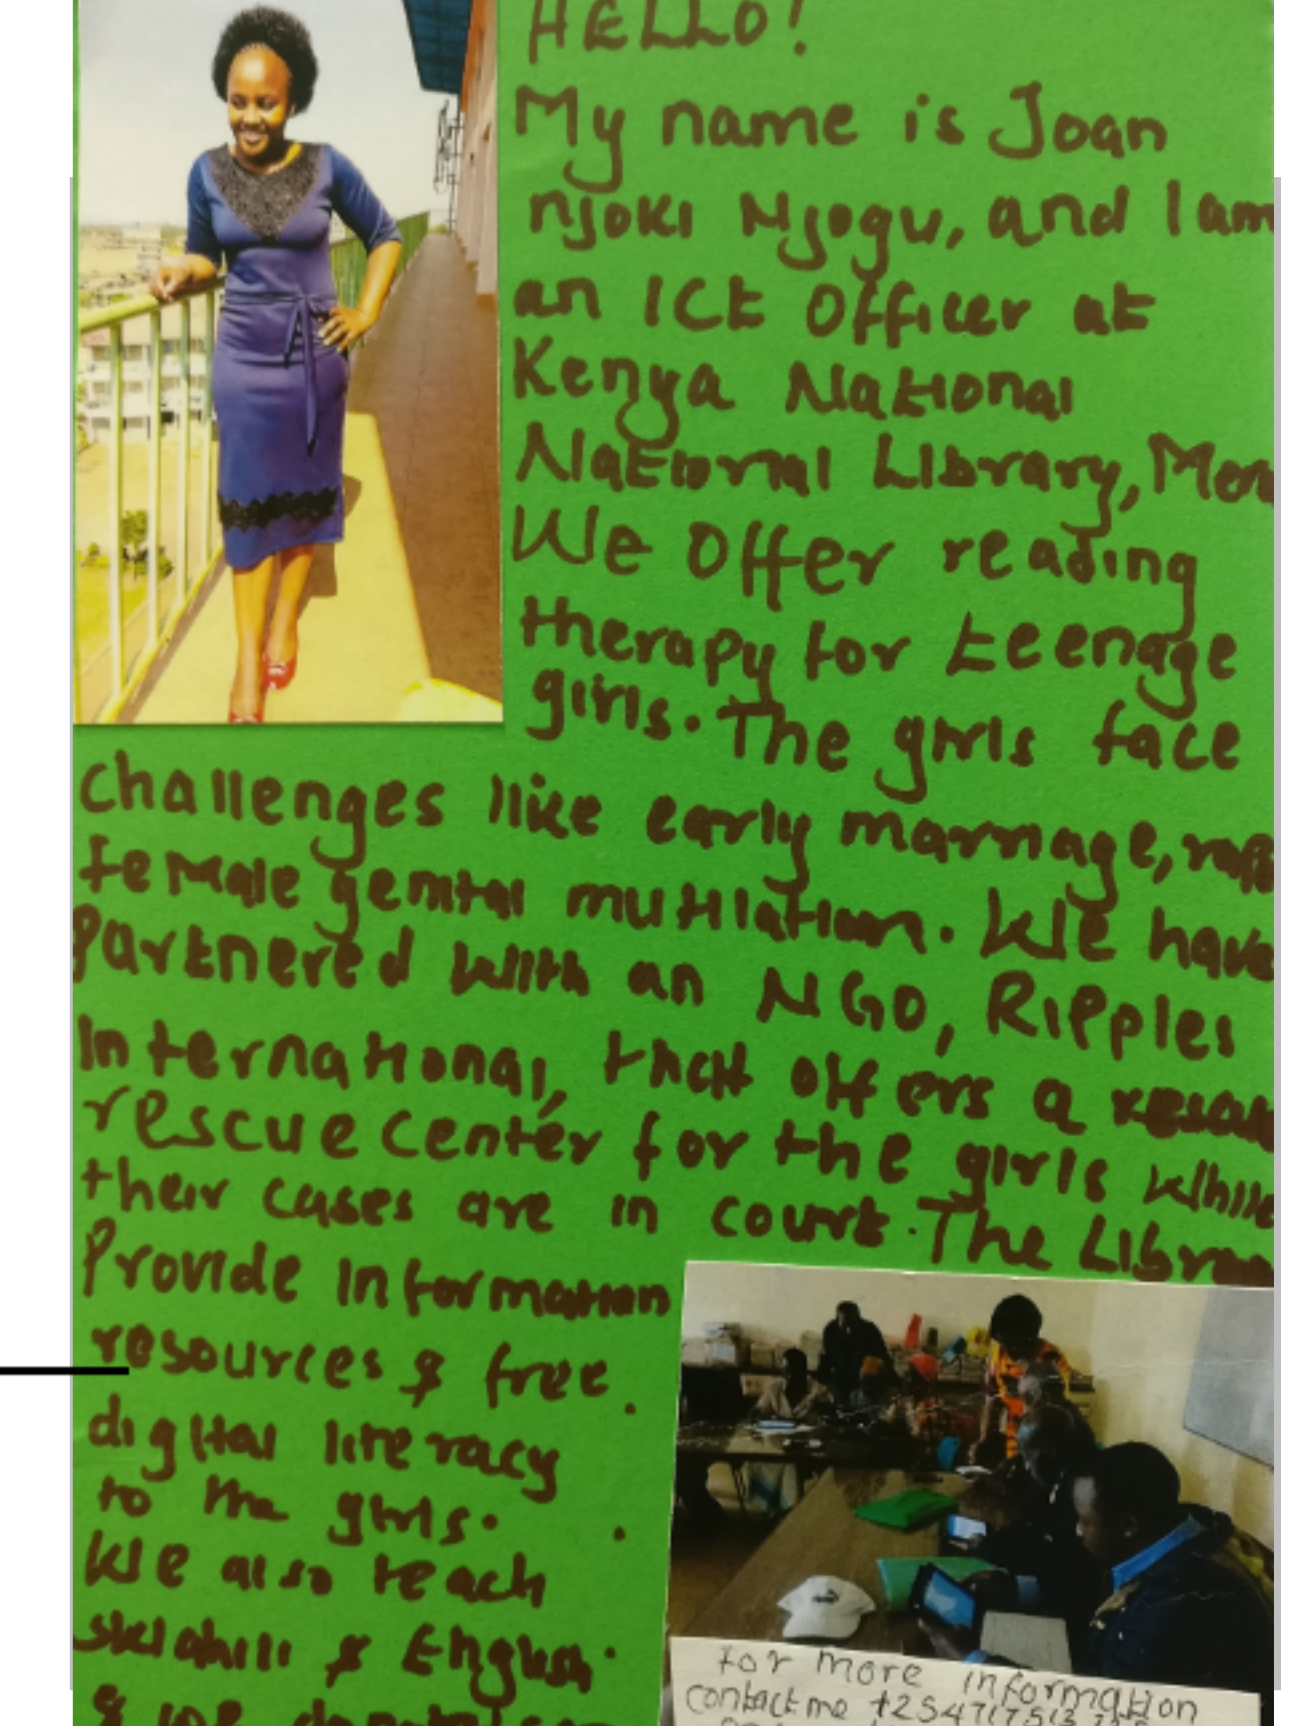 HELLO!
My name is Joan
Njoki Njogu, and I am
an ICT Officer at
Kenya National
National Library, Mer
We Offer reading
therapy for teenage
girls. The girls face
challenges like early marriage, rape
female genital mutilation. We have
Partnered with an NGO, Ripples
International, that offers a
rescue center for the girls while
their cases are in court. The Librar
Provide Information
resources & free
digital literacy
to the girls.
We also teach
Swahili & English
& we
For more information
contact me